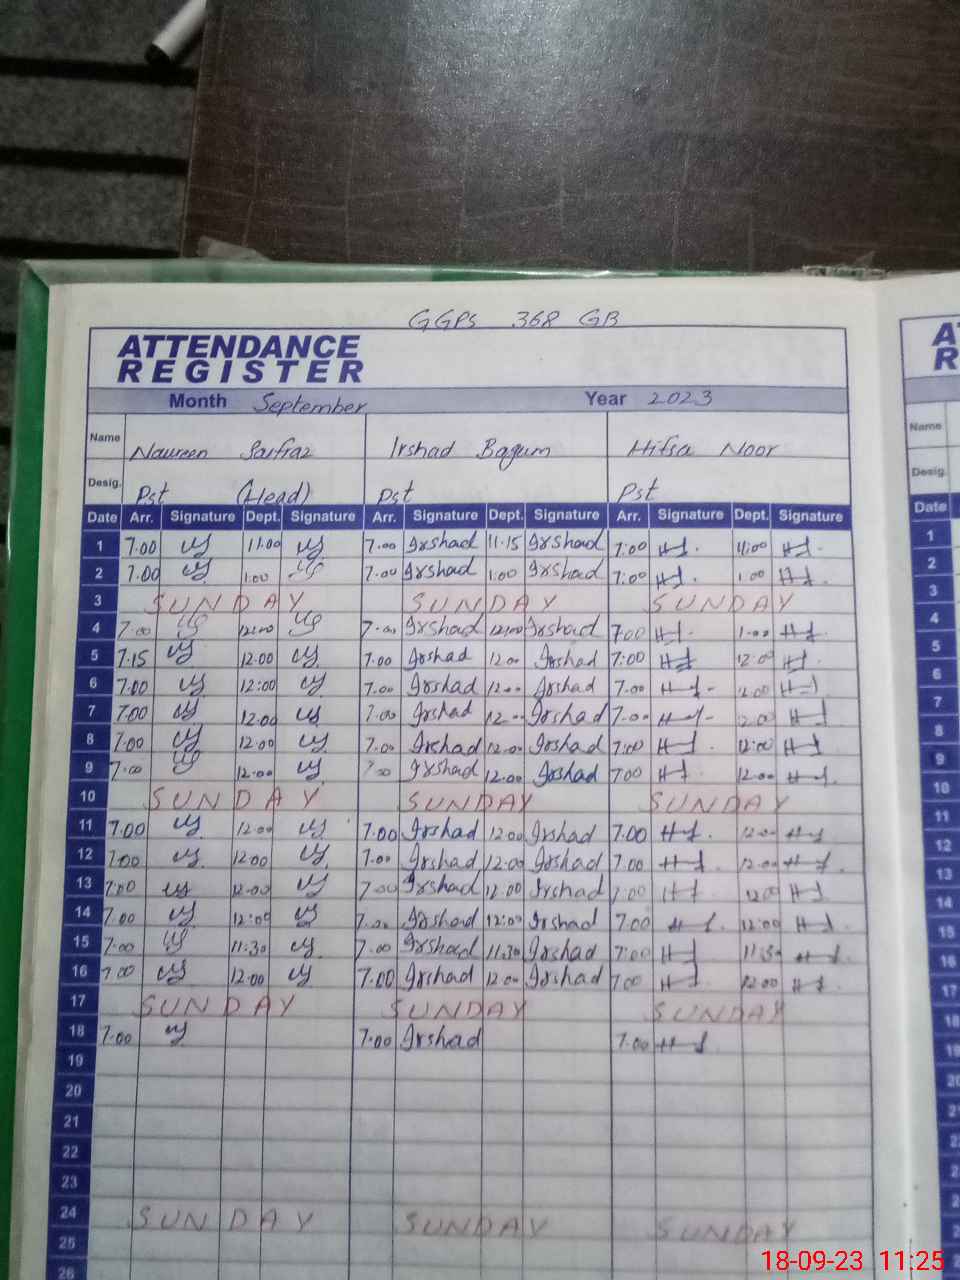 GGPS 368 GB
ATTENDANCE
REGISTER
Month September Year 2023
Name Naureen Sarfraz Irshad Bagum Hifsa Noor
Desig. Pst (Head) Pst Pst
Date Arr. Signature Dept. Signature Arr. Signature Dept. Signature Arr. Signature Dept. Signature
1 7.00 11.00 7.00 Irshad 11.15 Irshad 7:00 11:00
2 7.00 1:00 7.00 Irshad 1:00 Irshad 7:00 1:00
3 SUNDAY SUNDAY SUNDAY
4 7.00 12:00 7.00 Irshad 12:00 Irshad 7:00 1:00
5 7.15 12.00 7.00 Irshad 12.00 Irshad 7:00 12:00
6 7.00 12:00 7.00 Irshad 12.00 Irshad 7.00 12.00
7 7.00 12.00 7.00 Irshad 12.00 Irshad 7.00 12.00
8 7.00 12.00 7.00 Irshad 12.00 Irshad 7:00 12:00
9 7.00 12.00 7.00 Irshad 12.00 Irshad 7:00 12.00
10 SUNDAY SUNDAY SUNDAY
11 7.00 12.00 7.00 Irshad 12.00 Irshad 7.00 12.00
12 7.00 12.00 7.00 Irshad 12.00 Irshad 7.00 12.00
13 7.00 12.00 7.00 Irshad 12.00 Irshad 7:00 12.00
14 7.00 12:00 7.00 Irshad 12:00 Irshad 7.00 12:00
15 7.00 11.30 7.00 Irshad 11.30 Irshad 7:00 11:30
16 7.00 12.00 7.00 Irshad 12.00 Irshad 7:00 12.00
17 SUNDAY SUNDAY SUNDAY
18 7.00 7.00 Irshad 7.00
19
20
21
22
23
24 SUNDAY SUNDAY SUNDAY
25
26
Name
Desig.
Date
1
2
3
4
5
6
7
8
9
10
11
12
13
14
15
16
17
18
18-09-23 11:25